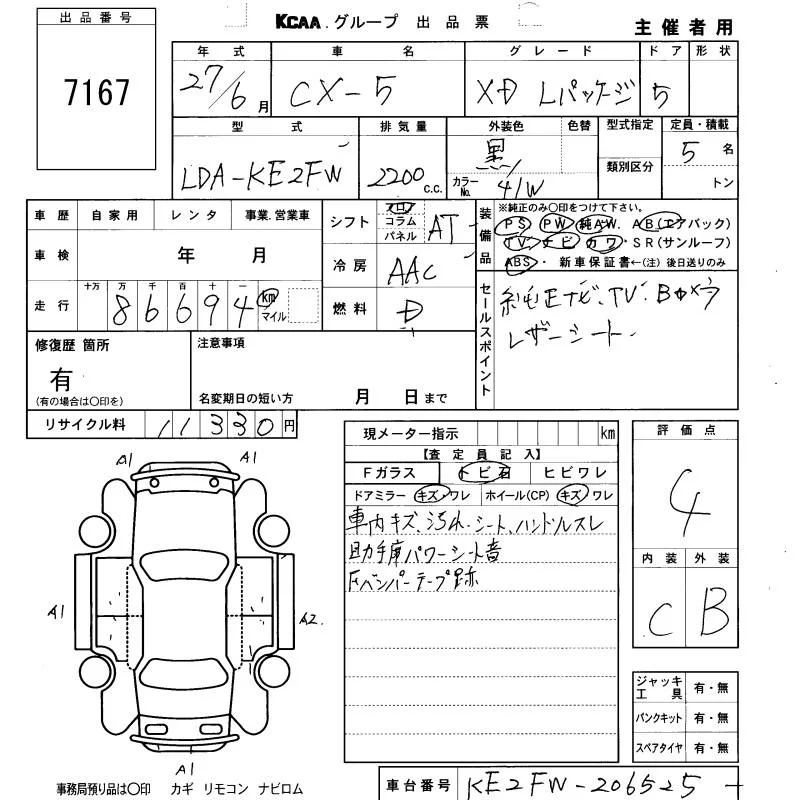 出品番号
7167
KCAA.グループ 出品票
主催者用
年式 車名 グレード ドア 形状
27/6月 CX-5 XD Lパッケージ 5
型式 排気量 外装色 色替 型式指定 定員・積載
LDA-KE2FW 2200 c.c. 黒 類別区分 5名
カラーNo. 41W トン
車歴 自家用 レンタ 事業.営業車
車検 年 月
走行 十万 万 千 百 十 一 km マイル
86694
シフト フロア コラム パネル AT
冷房 AAC
燃料 D
装備品
※純正のみ〇印をつけて下さい。
PS PW 純AW. AB(エアバック)
TV ナビ カワ・SR(サンルーフ)
ABS・ 新車保証書←(注) 後日送りのみ
セールスポイント
純正ナビ.TV.Bカメラ
レザーシート.
修復歴 箇所
有
(有の場合は〇印を)
注意事項
名変期日の短い方 月 日まで
リサイクル料 11330円
現メーター指示 km
【査定員記入】
Fガラス トビ石 ヒビワレ
ドアミラー キズ・ワレ ホイール(CP) キズ ワレ
車内キズ、汚れ.シート、ハンドルスレ
助手席パワーシート音
Fバンパーテープ跡
評価点
4
内装 外装
C B
A1 A1
A1 A2
A1
ジャッキ工具 有・無
パンクキット 有・無
スペアタイヤ 有・無
事務局預り品は〇印 カギ リモコン ナビロム
車台番号 KE2FW-206525